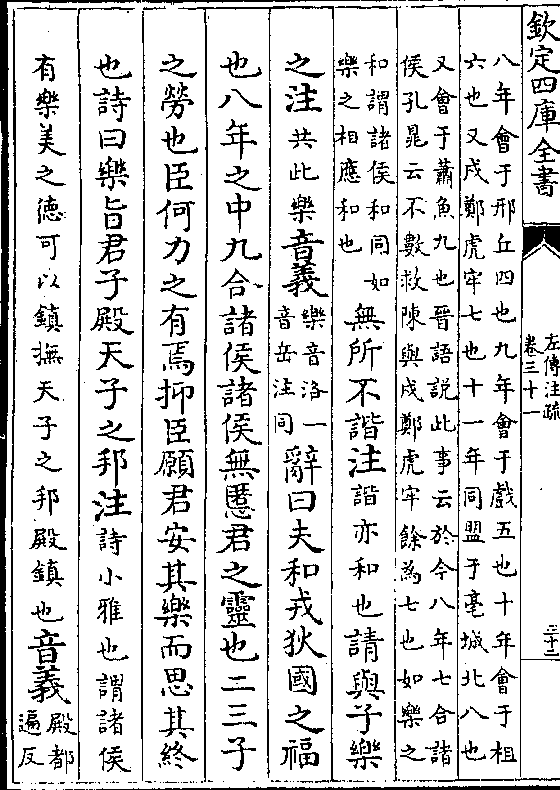 欽定四庫全書
左傳注疏
卷三十一
三十二
八年會于邢丘四也九年會于戲五也十年會于柤
六也又戍鄭虎牢七也十一年同盟于亳城北八也
又會于蕭魚九也晉語說此事云於今八年七合諸
侯孔晁云不數救陳與戍鄭虎牢餘為七也如樂之
和謂諸侯和同如
樂之相應和也
無所不諧注諧亦和也請與子樂
之注共此樂音義樂音洛一
音岳注同
辭曰夫和戎狄國之福
也八年之中九合諸侯諸侯無慝君之靈也二三子
之勞也臣何力之有焉抑臣願君安其樂而思其終
也詩曰樂旨君子殿天子之邦注詩小雅也謂諸侯
有樂美之德可以鎮撫天子之邦殿鎮也音義殿都
遍反